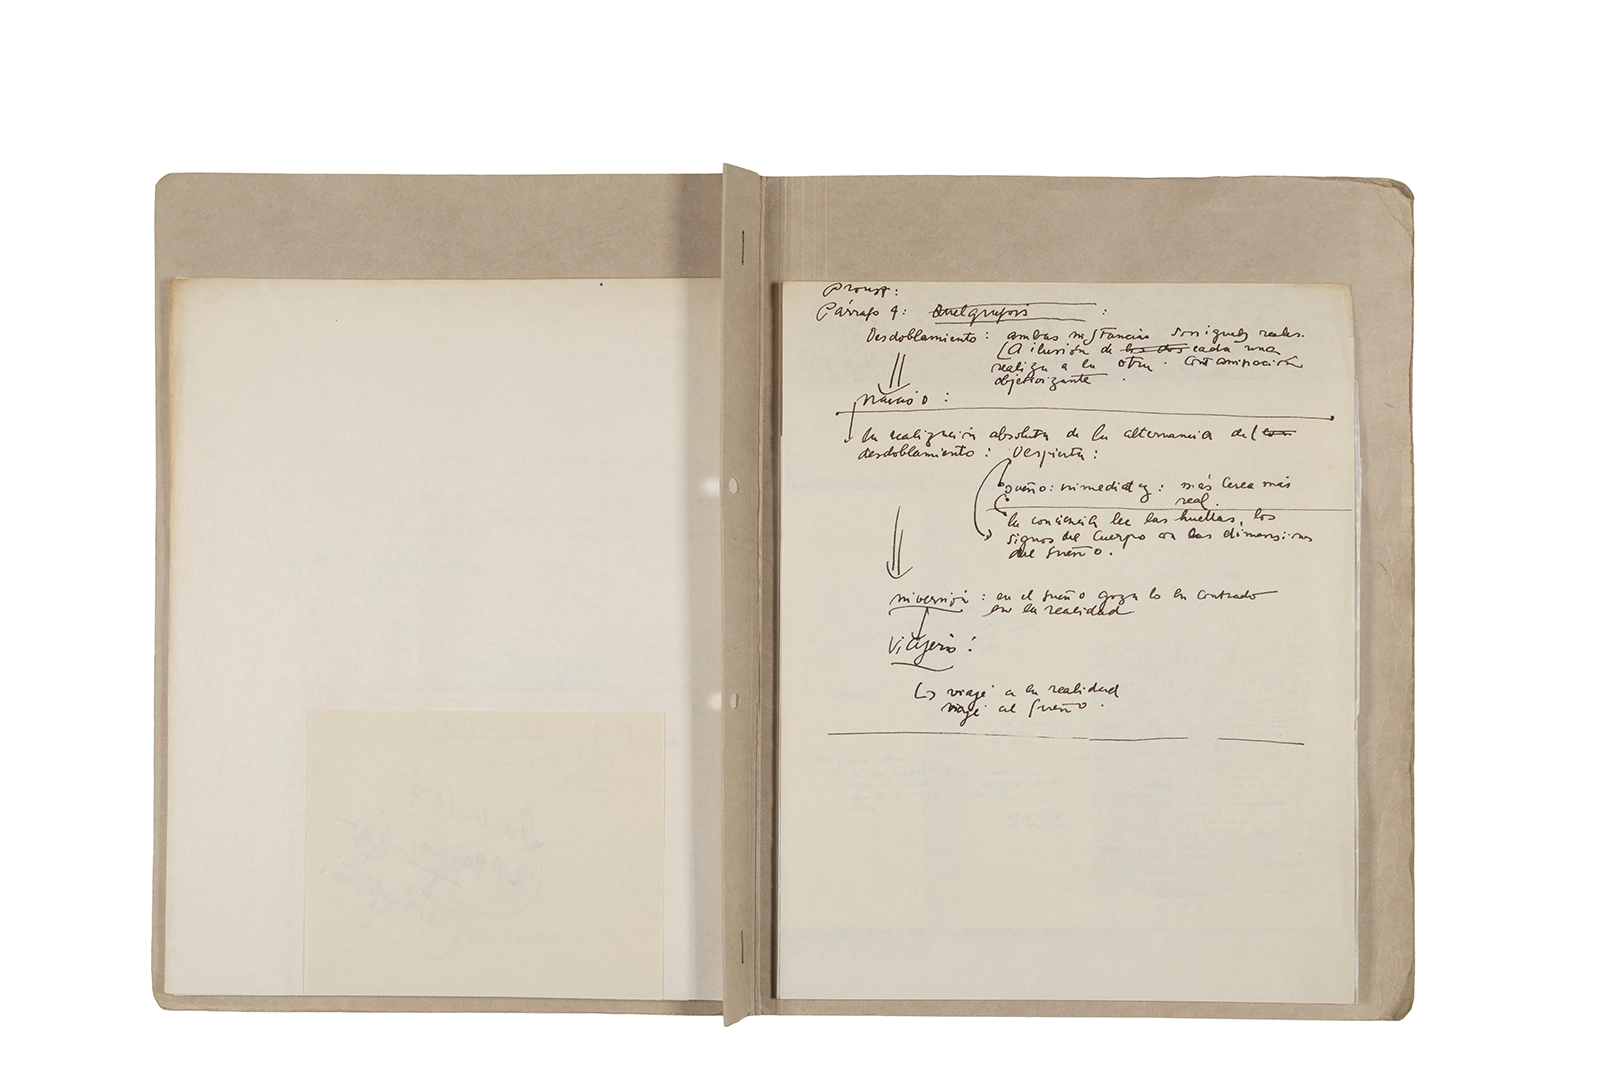 Proust:
Párrafo 4: Quelquefois :
Desdoblamiento: ambas instancias son igual reales.
La ilusión de las dos cada una
realiza a la otra. Contaminación
objetivizante.
la realización absoluta de la alternancia del
desdoblamiento: Despierta:
sueño: inmediatez: más cerca más
real.
la conciencia lee las huellas, los
signos del cuerpo en las dimensiones
del sueño.
inversión: en el sueño goza lo encontrado
en la realidad
Viajero:
viaje a la realidad
viaje al sueño.